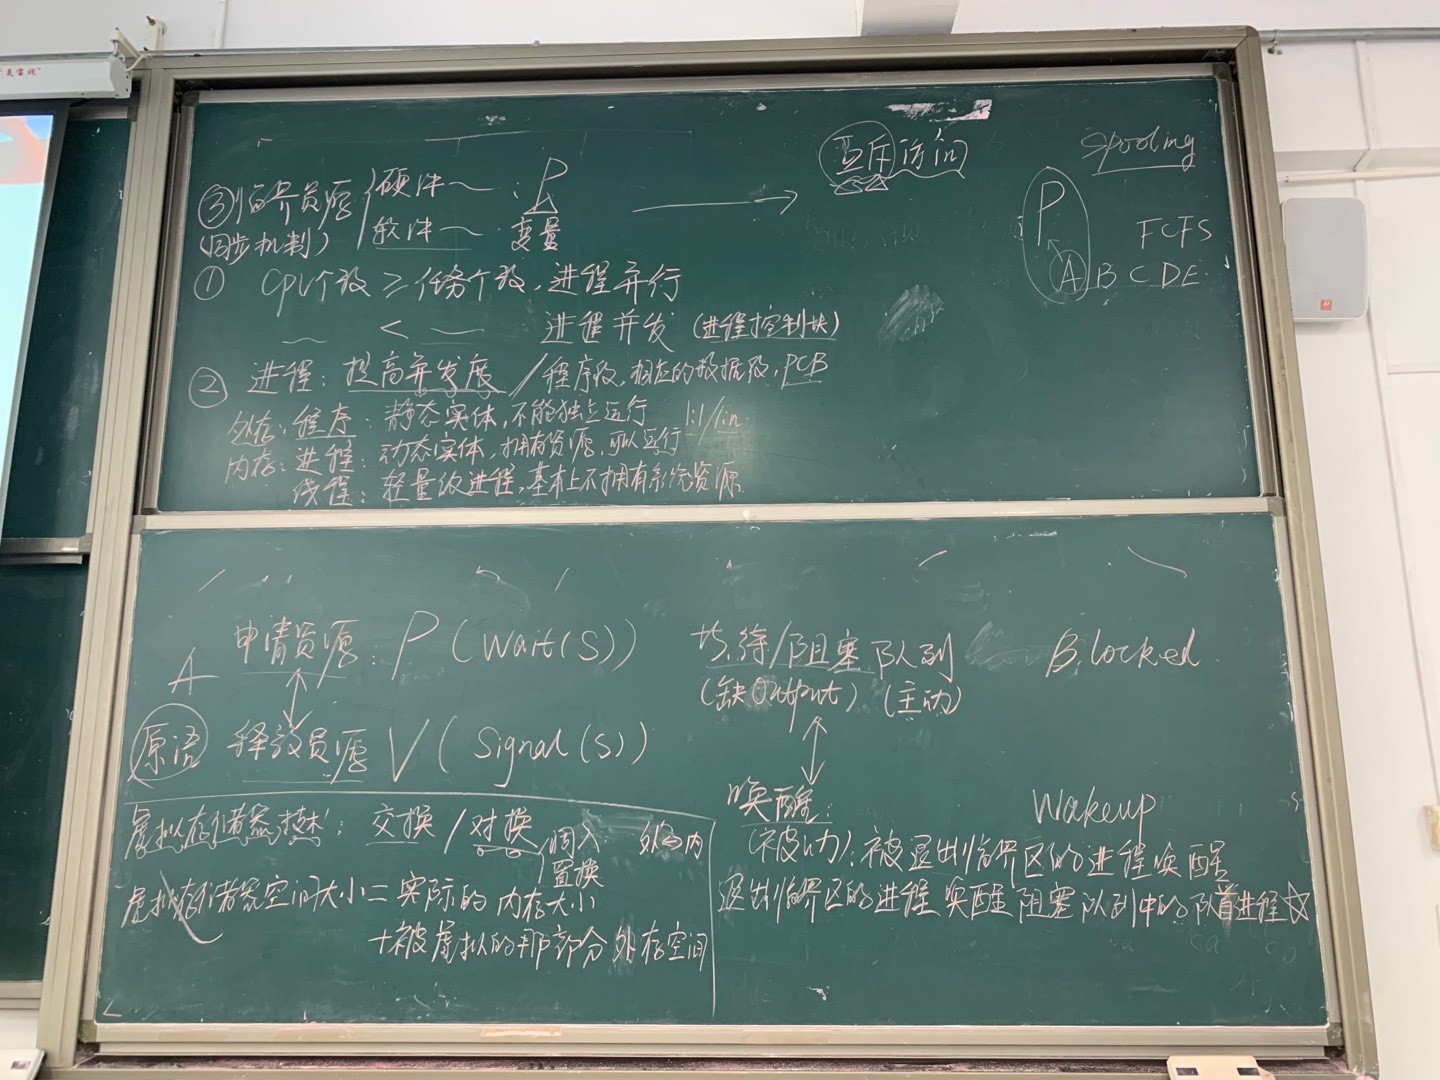 麦雪城"
③临界资源 硬件~ : P
(同步机制) 软件~ 变量
互斥访问
Spooling
P FCFS
A B C D E
① CPU个数 ≥ 任务个数, 进程并行
~ < — 进程并发 (进程控制块)
② 进程: 提高并发度 / 程序段, 相应的数据段, PCB
外存: 程序: 静态实体, 不能独立运行 1:1/1:n
内存: 进程: 动态实体, 拥有资源, 可以运行
线程: 轻量级进程, 基本上不拥有系统资源
A 申请资源: P (Wait(S))
原语 释放资源 V (Signal(S))
等待/阻塞队列 Blocked
(缺Output) (主动)
唤醒: Wakeup
(被动): 被退出临界区的进程唤醒
退出临界区的进程唤醒阻塞队列中的队首进程
虚拟存储器技术: 交换 / 对换 调入 外⇔内
置换
虚拟存储器空间大小 = 实际的内存大小
+被虚拟的那部分外存空间